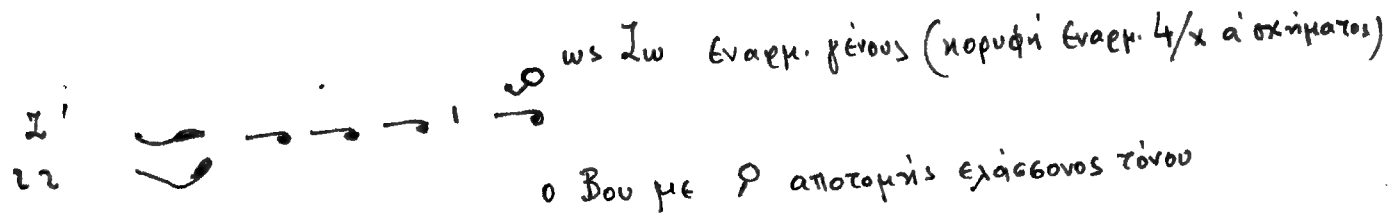 ως Ζω εναρμ. γένους (κορυφή εναρμ. 4/χ α' σχήματος)
Ζ'
ο Βου με ϙ αποτομής ελάσσονος τόνου